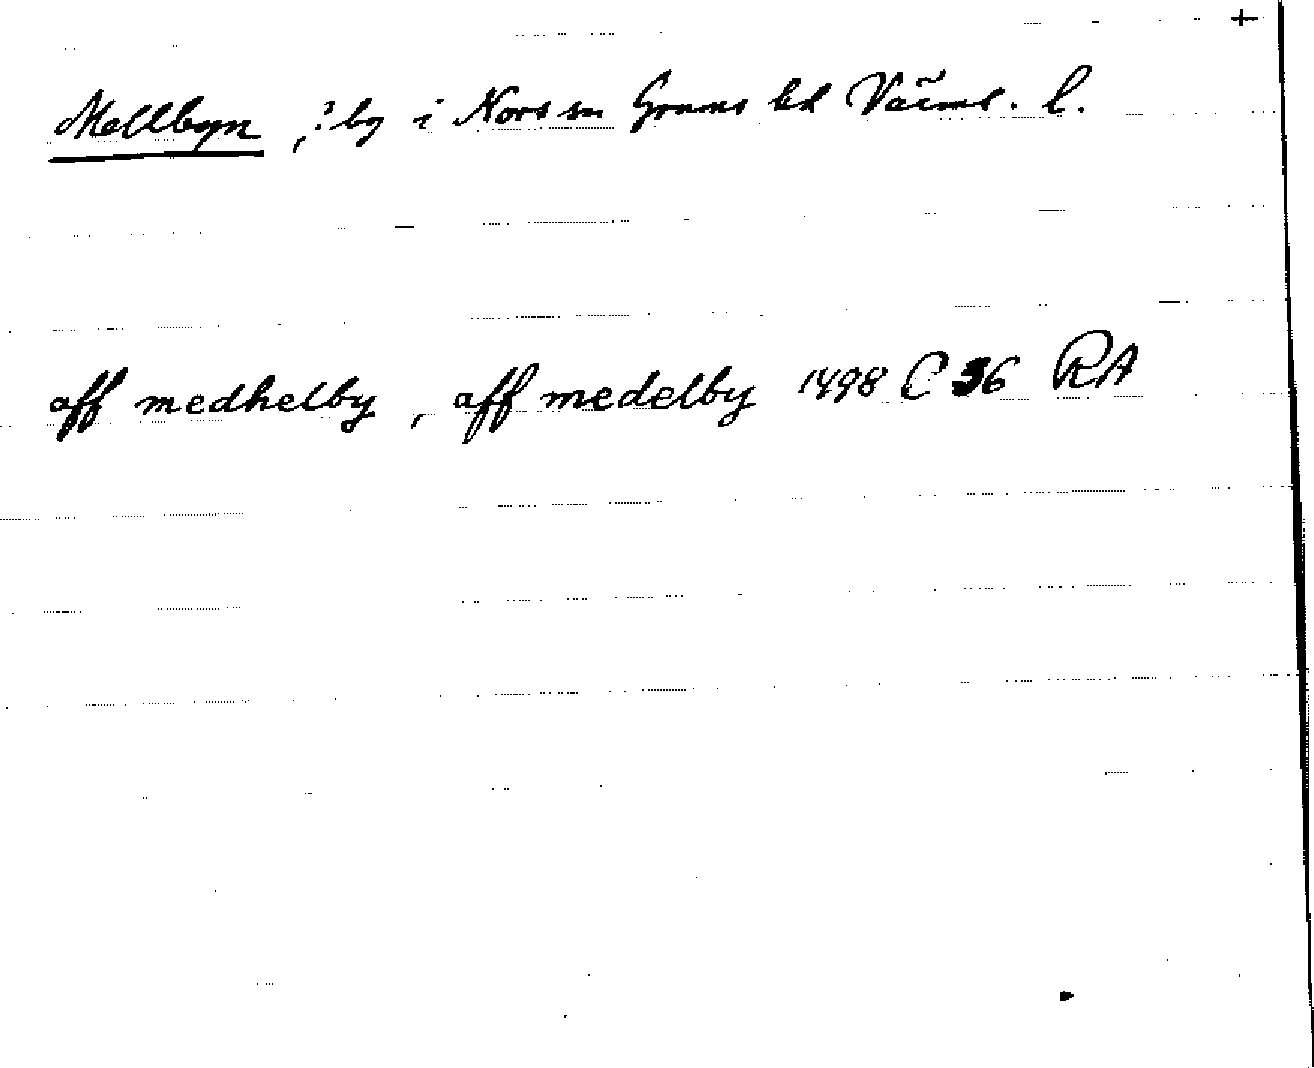 +
Mellbyn, ? by i Nors sn Grums hd Värml. l.
aff medhelby, aff medelby 1498 C 36 RA